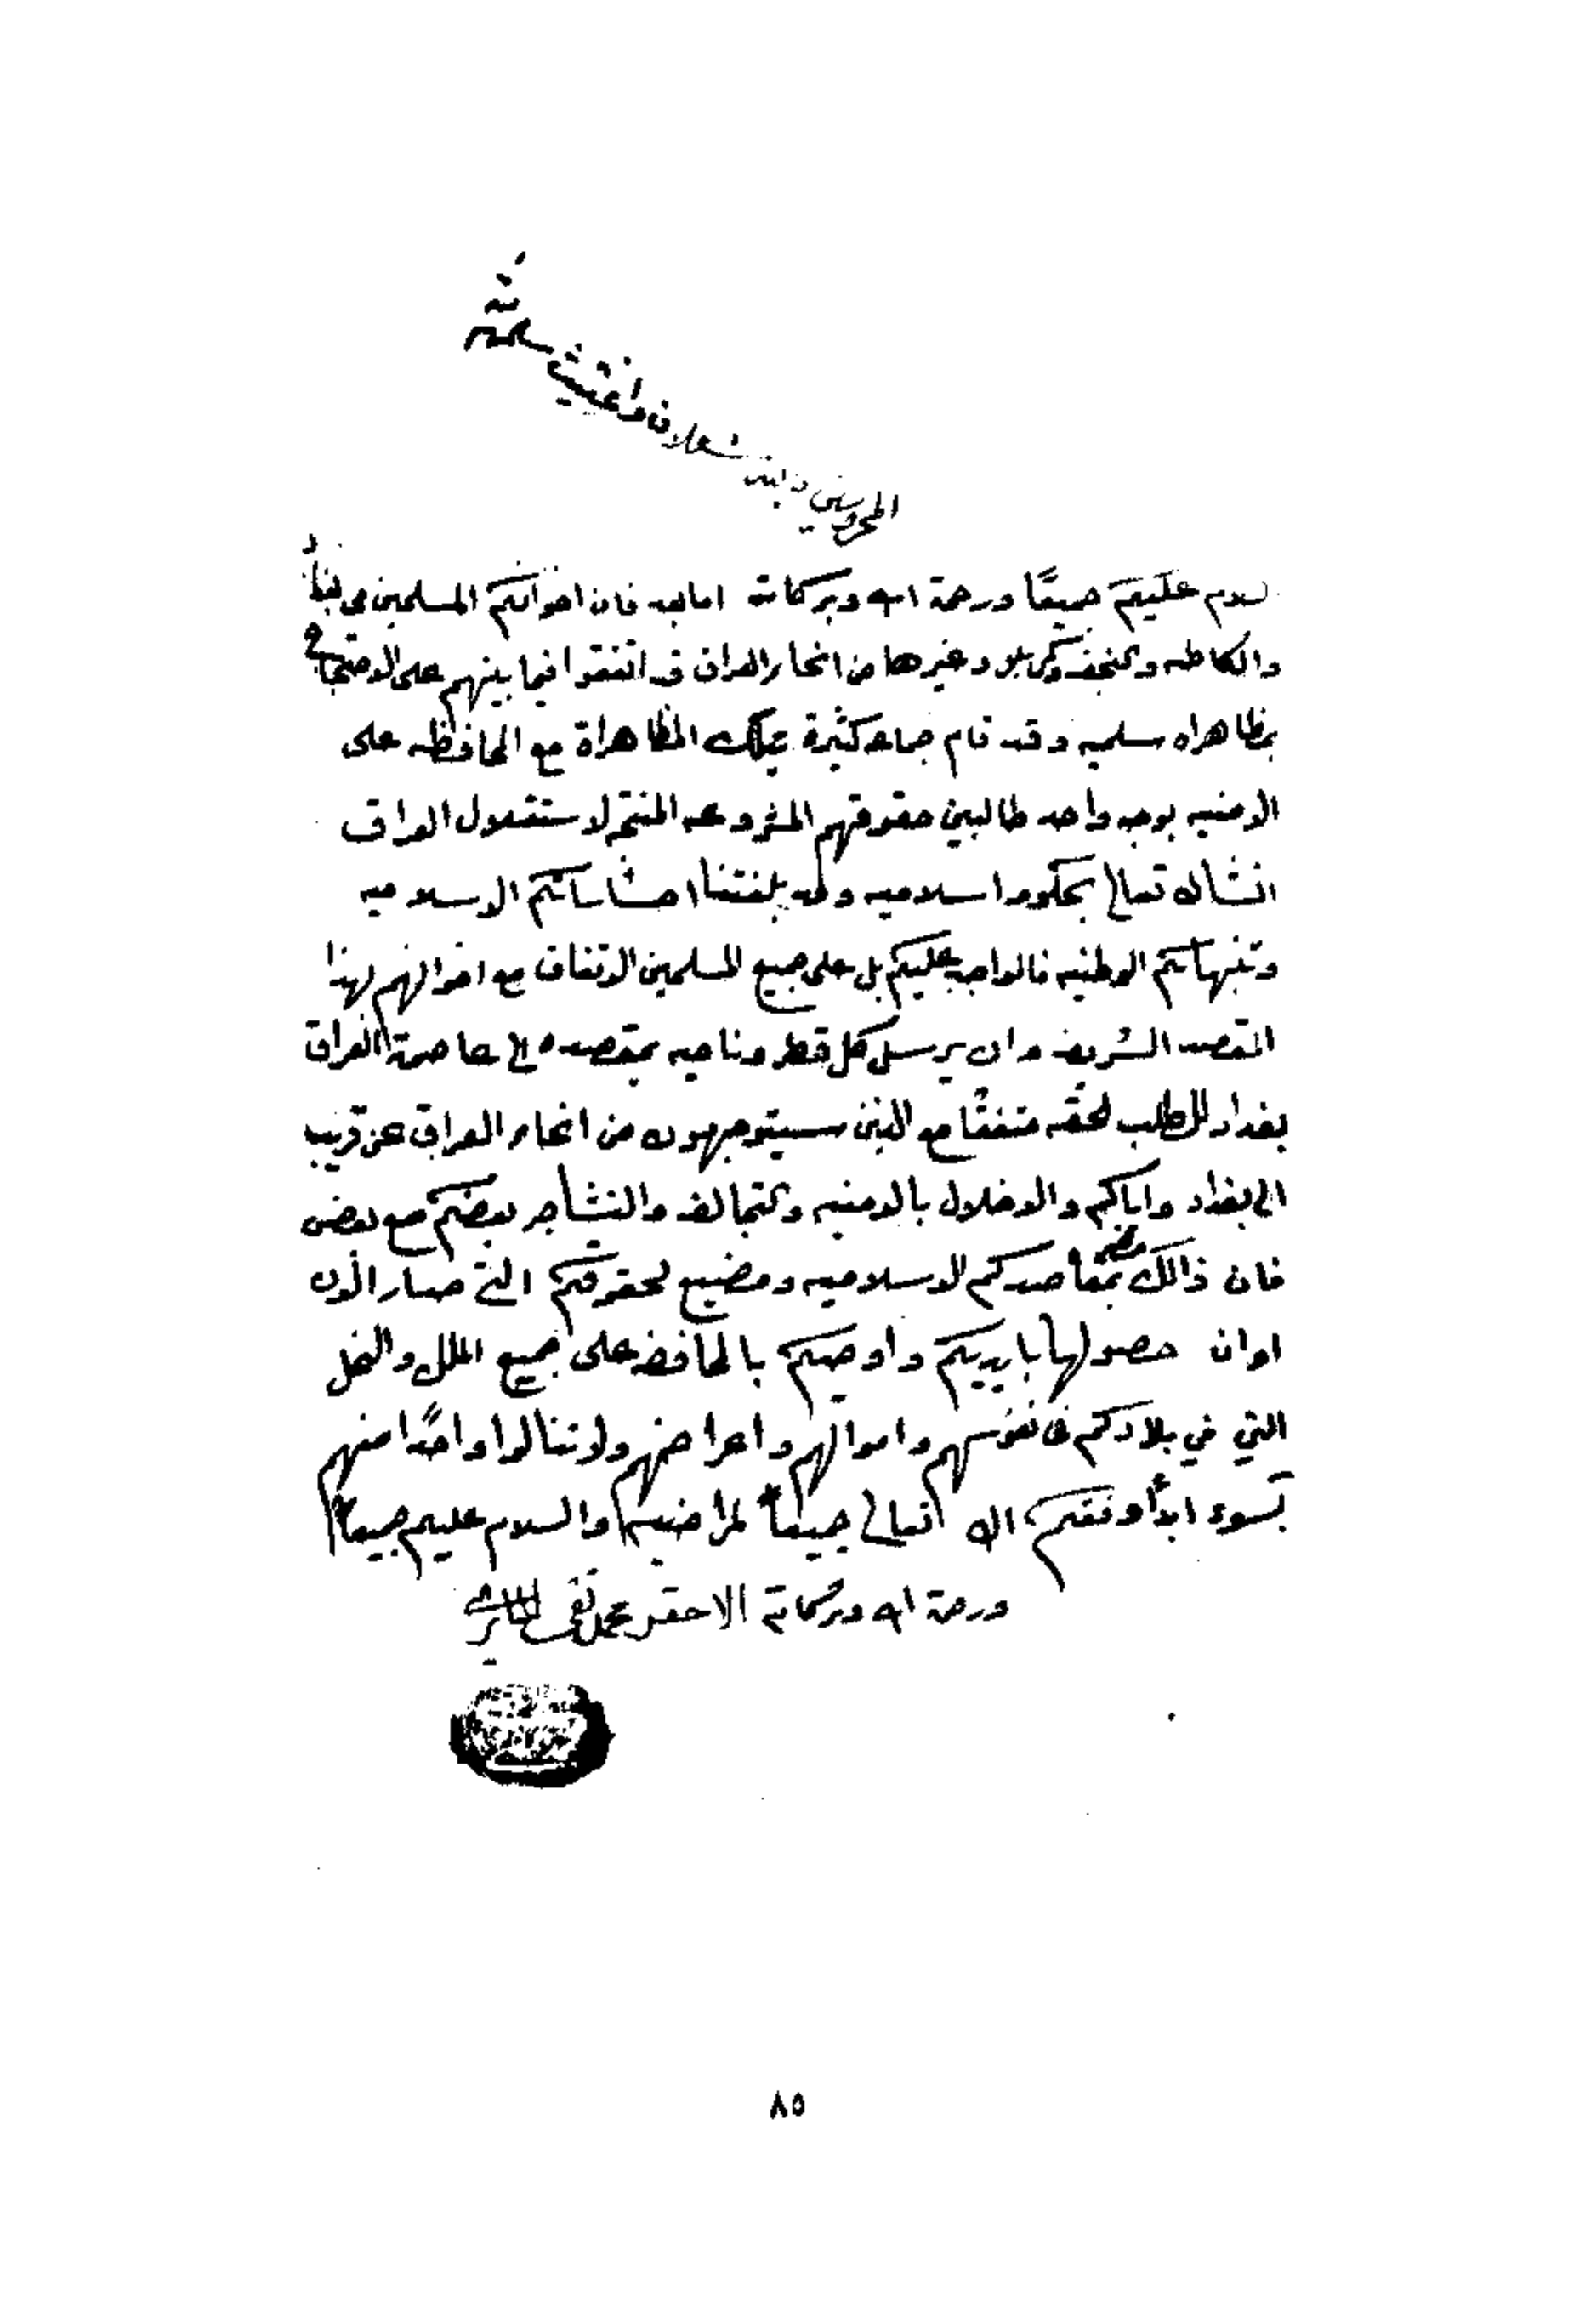 السلام عليكم جميعًا ورحمة الله وبركاته اما بعد فان اخوانكم المسلمين في بغداد
والكاظميه والنجف وكربلا وغيرها من انحاء العراق قد اتفقوا فيما بينهم على الاجتماع
بمظاهراه سلميه وقد قام جماعه كثيرة بتلك المظاهراة مع المحافظه على
الامنيه بوجه واحد طالبين حقوقهم المشروعه المنتجه لاستقلال العراق
انشاالله تعالى بحكومه اسلاميه وقد بلغتنا احساساتكم الاسلاميه
وتنبهاتكم الوطنيه فالواجب عليكم بل على جميع المسلمين الاتفاق مع اخوانهم بهذا
القصد الشريف وان يرسل كل قطر وناحيه بمقصده الى عاصمة العراق
بغداد للطلب لحقه متفقًا مع الذين سيتوجهون من انحاء العراق عن قريب
الى بغداد واياكم والاخلال بالامنيه والتخالف والتشاجر بعضكم مع بعض
فان ذالك مضر بمقاصدكم الاسلاميه ومضيع لحقوقكم التي صار الأن
اوان حصولها بايديكم واوصيكم بالمحافضه على جميع الملل والنحل
التي في بلادكم في نفوسهم واموالهم واعراضهم ولا تنالوا واحدًا منهم
بسوء ابدًا وفقكم الله تعالى جميعاً لمراضيه والسلام عليكم جميعاً
ورحمة الله وبركاته الاحقر محمد تقي الحائري
٨٥